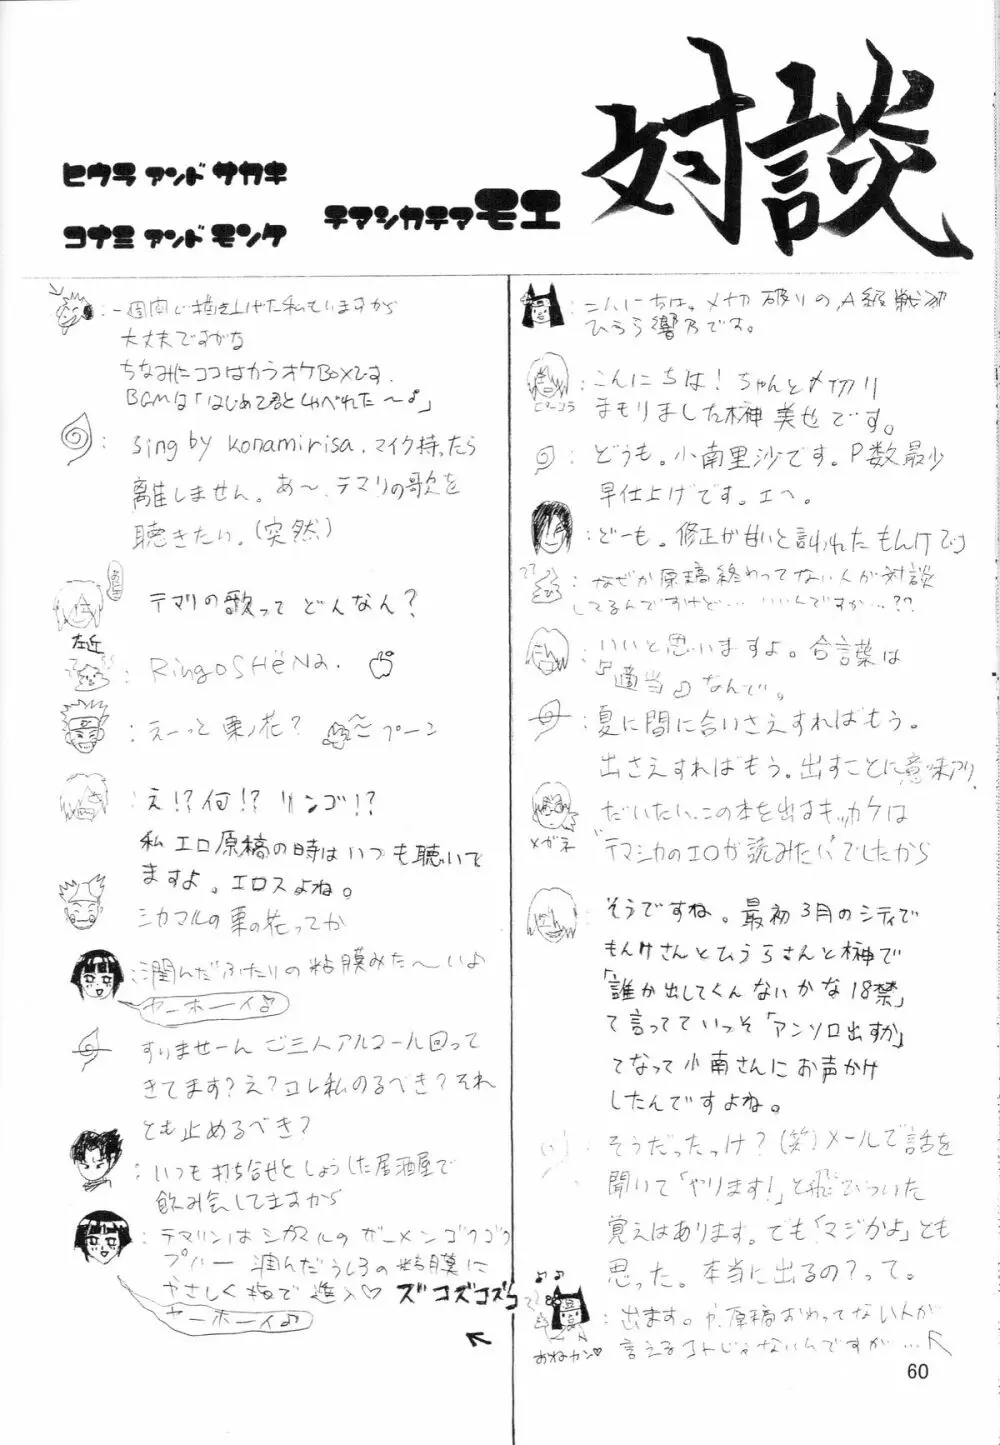 対談
テマシカテマモエ
ヒウラ アンド サカキ
コナミ アンド モンケ
:こんにちは。〆切破りのA級戦犯
ひうら響乃です。
:こんにちは!ちゃんと〆切り
まもりました榊美也です。
ピンコラ
:どうも。小南里沙です。P数最少
早仕上げです。エヘ。
:どーも。修正が甘いと言われたもんけです
:なぜか原稿終わってない人が対談
してるんですけど…いいんですか…??
:いいと思いますよ。合言葉は
『適当♪』なんで。
:夏に間に合いさえすればもう。
出さえすればもう。出すことに意味アリ。
メガネ
だいたい、この本を出すキッカケは
"テマシカのエロが読みたい"でしたから
:そうですね。最初3月のシティで
もんけさんとひうらさんと榊で
「誰か出してくんないかな18禁」
て言ってていっそ「アンソロ出すか」
てなって小南さんにお声かけ
したんですよね。
:そうだったっけ?(笑)メールで話を
聞いて「やります!」と飛びついた
覚えはあります。でも「マジかよ」とも
思った。本当に出るの?って。
:出ます。か、原稿おわってない人が
言えるコトじゃないんですが…
おねカン♡
:一週間で描き上げた私もいますから
大丈夫ですがな
ちなみにココはカラオケBOXです。
BGMは「はじめて君としゃべれた〜♪」
:sing by konamirisa.マイク持ったら
離しません。あ〜、テマリの歌を
聴きたい。(突然)
左近
テマリの歌って どんなん?
:RingoSHëNa.
:えーっと栗ノ花? プーン
:え!?何!? リンゴ!?
私エロ原稿の時はいつも聴いて
ますよ。エロスよね。
シカマルの栗の花ってか
:潤んだふたりの粘膜みた〜いよ
ヤーホーイ♪
すりませーん ご三人アルコール回って
きてます?え?コレ私のるべき?それ
とも止めるべき?
:いつも打ち合せとしょうした居酒屋で
飲み会してますから
:テマリンはシカマルのザーメンゴクゴク
プハー 潤んだうしろの粘膜に
やさしく指で進入♡ ズコズコズコ
ヤーホーイ♪
60